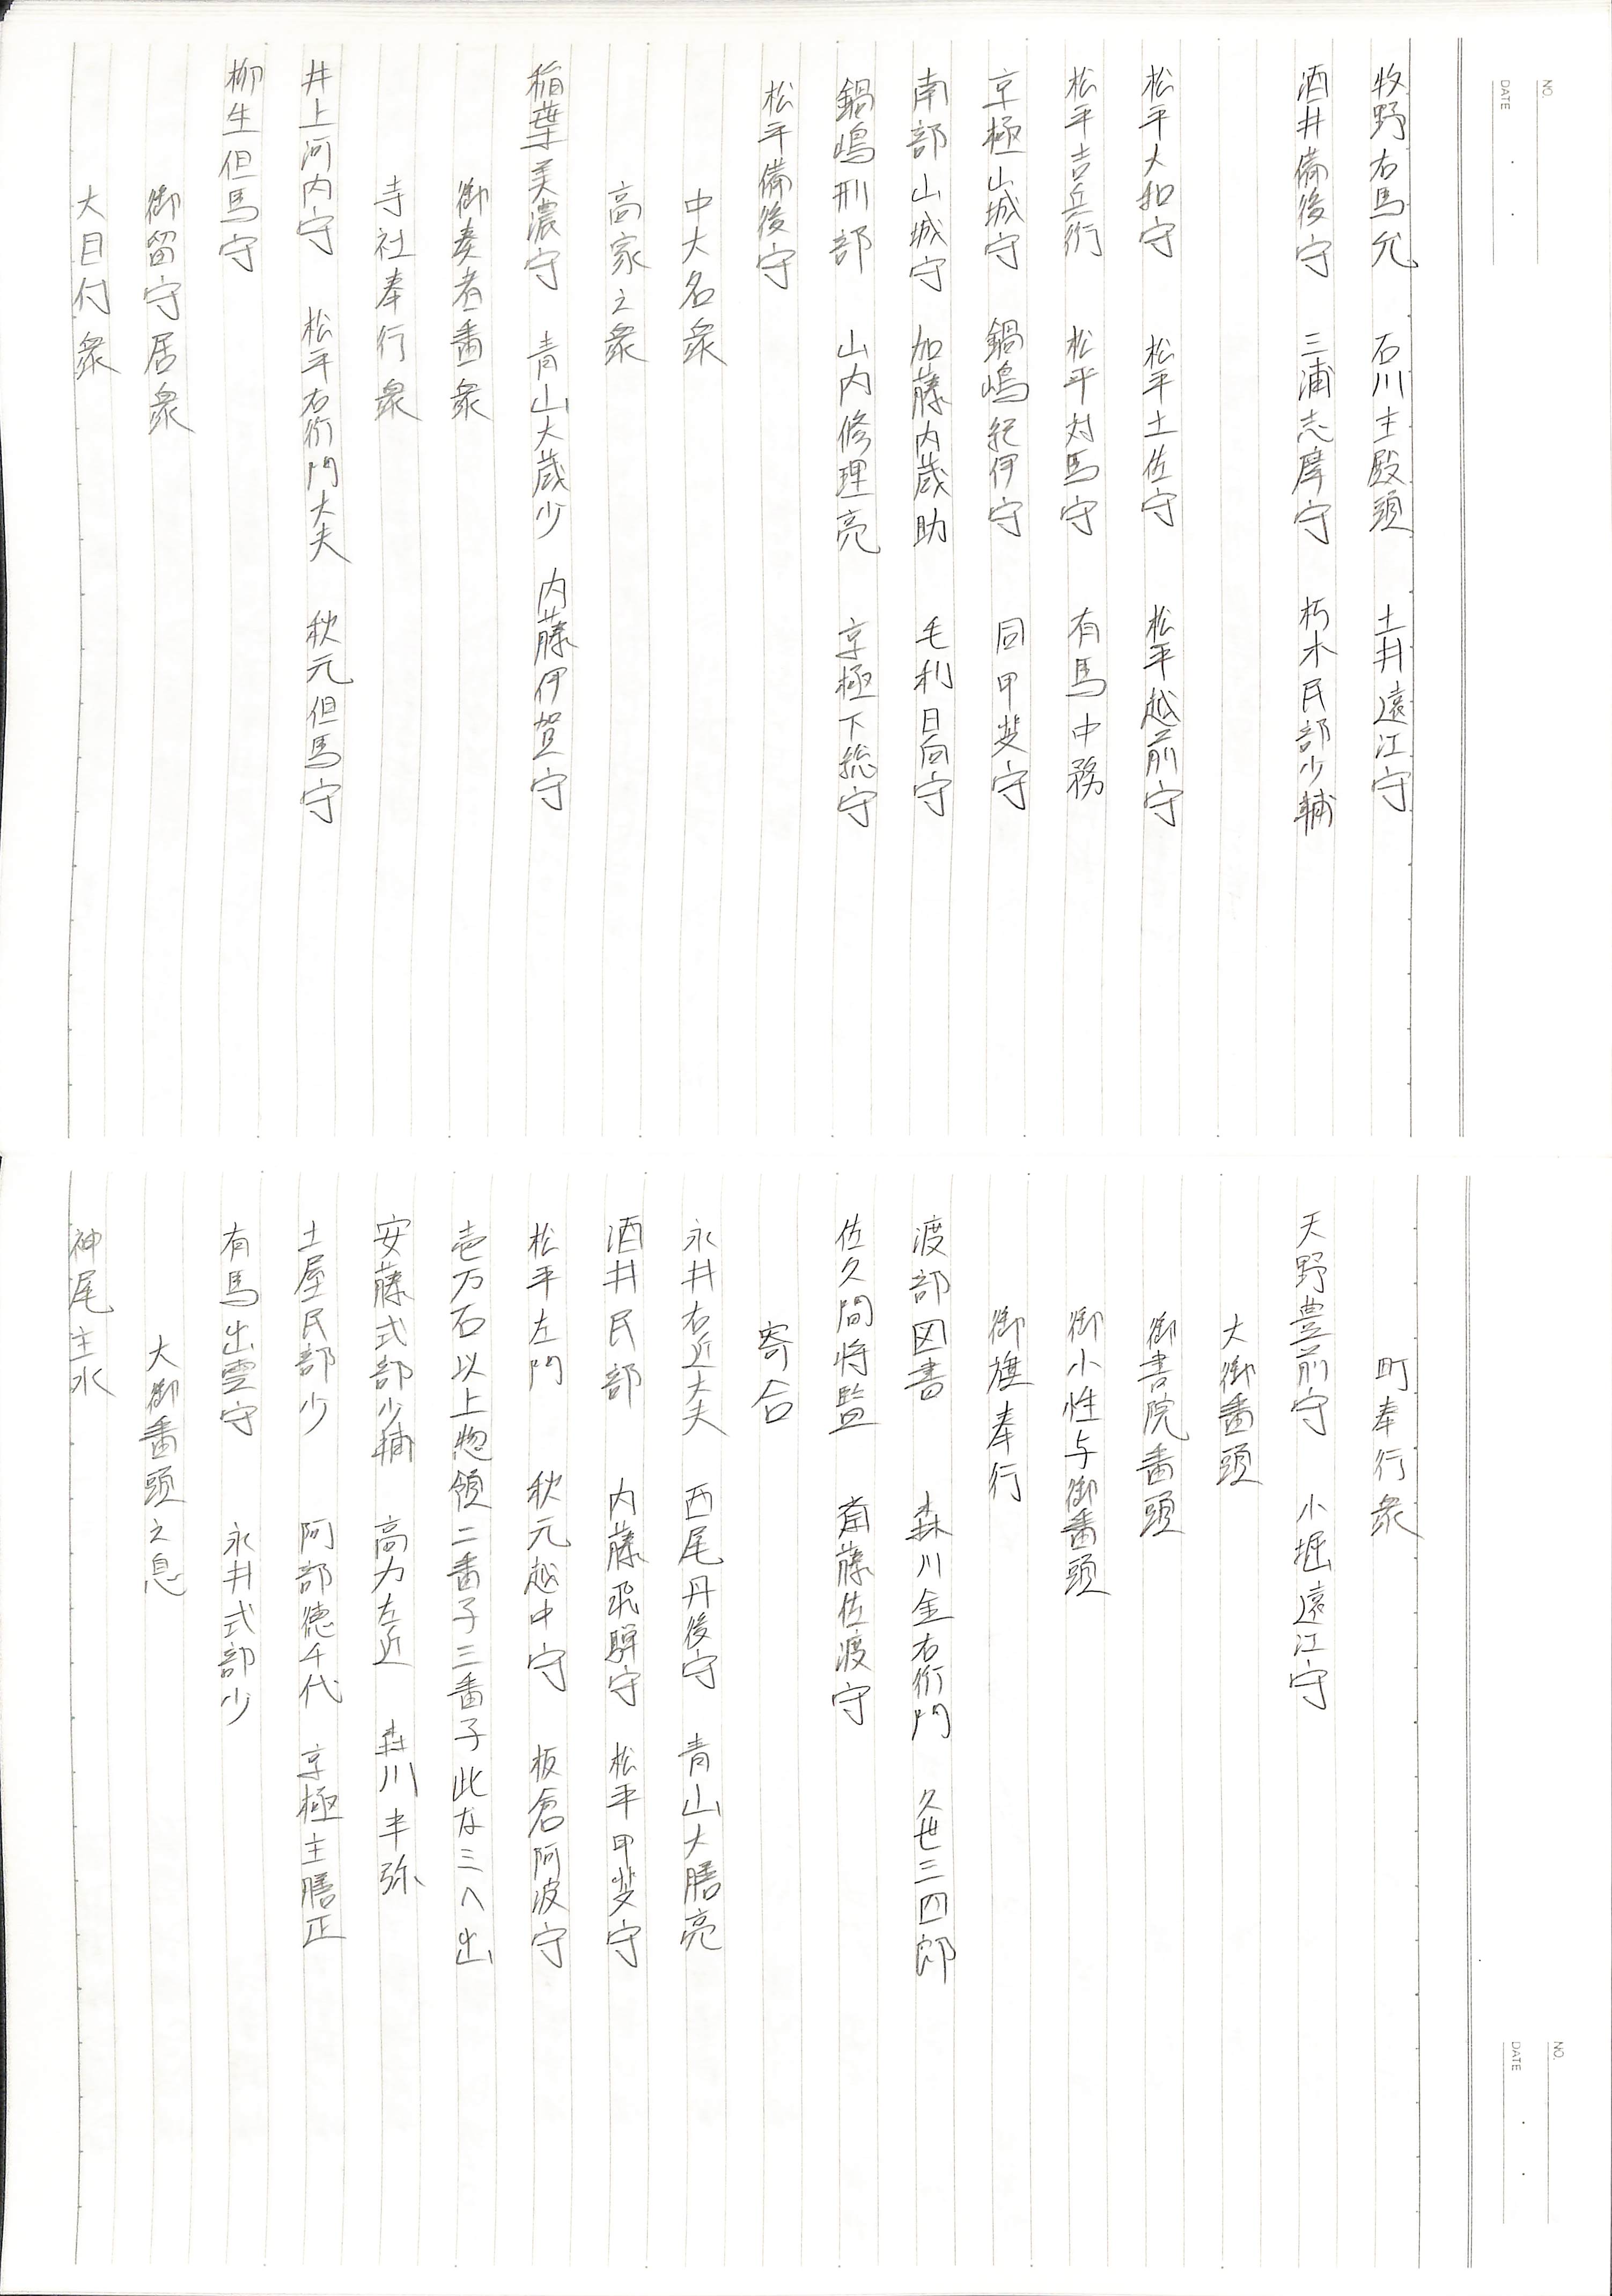 NO.
DATE
牧野右馬允 石川主殿頭 土井遠江守
酒井備後守 三浦志摩守 朽木民部少輔
松平大和守 松平土佐守 松平越前守
松平吉兵衛 松平対馬守 有馬中務
京極山城守 鍋嶋紀伊守 同甲斐守
南部山城守 加藤内蔵助 毛利日向守
鍋嶋刑部 山内修理亮 京極下総守
松平備後守
中大名衆
高家之衆
稲葉美濃守 青山大蔵少 内藤伊賀守
御奏者番衆
寺社奉行衆
井上河内守 松平右衛門大夫 秋元但馬守
柳生但馬守
御留守居衆
大目付衆
町奉行衆
天野豊前守 小堀遠江守
大御番頭
御書院番頭
御小性与御番頭
御旗奉行
渡部図書 森川金右衛門 久世三四郎
佐久間将監 斎藤佐渡守
寄合
永井右近大夫 西尾丹後守 青山大膳亮
酒井民部 内藤飛騨守 松平甲斐守
松平左門 秋元越中守 板倉阿波守
壱万石以上惣領二番子三番子此な三へ出
安藤式部少輔 高力左近 森川半弥
土屋民部少 阿部徳千代 京極主膳正
有馬出雲守 永井式部少
大御番頭之息
神尾主水
NO.
DATE